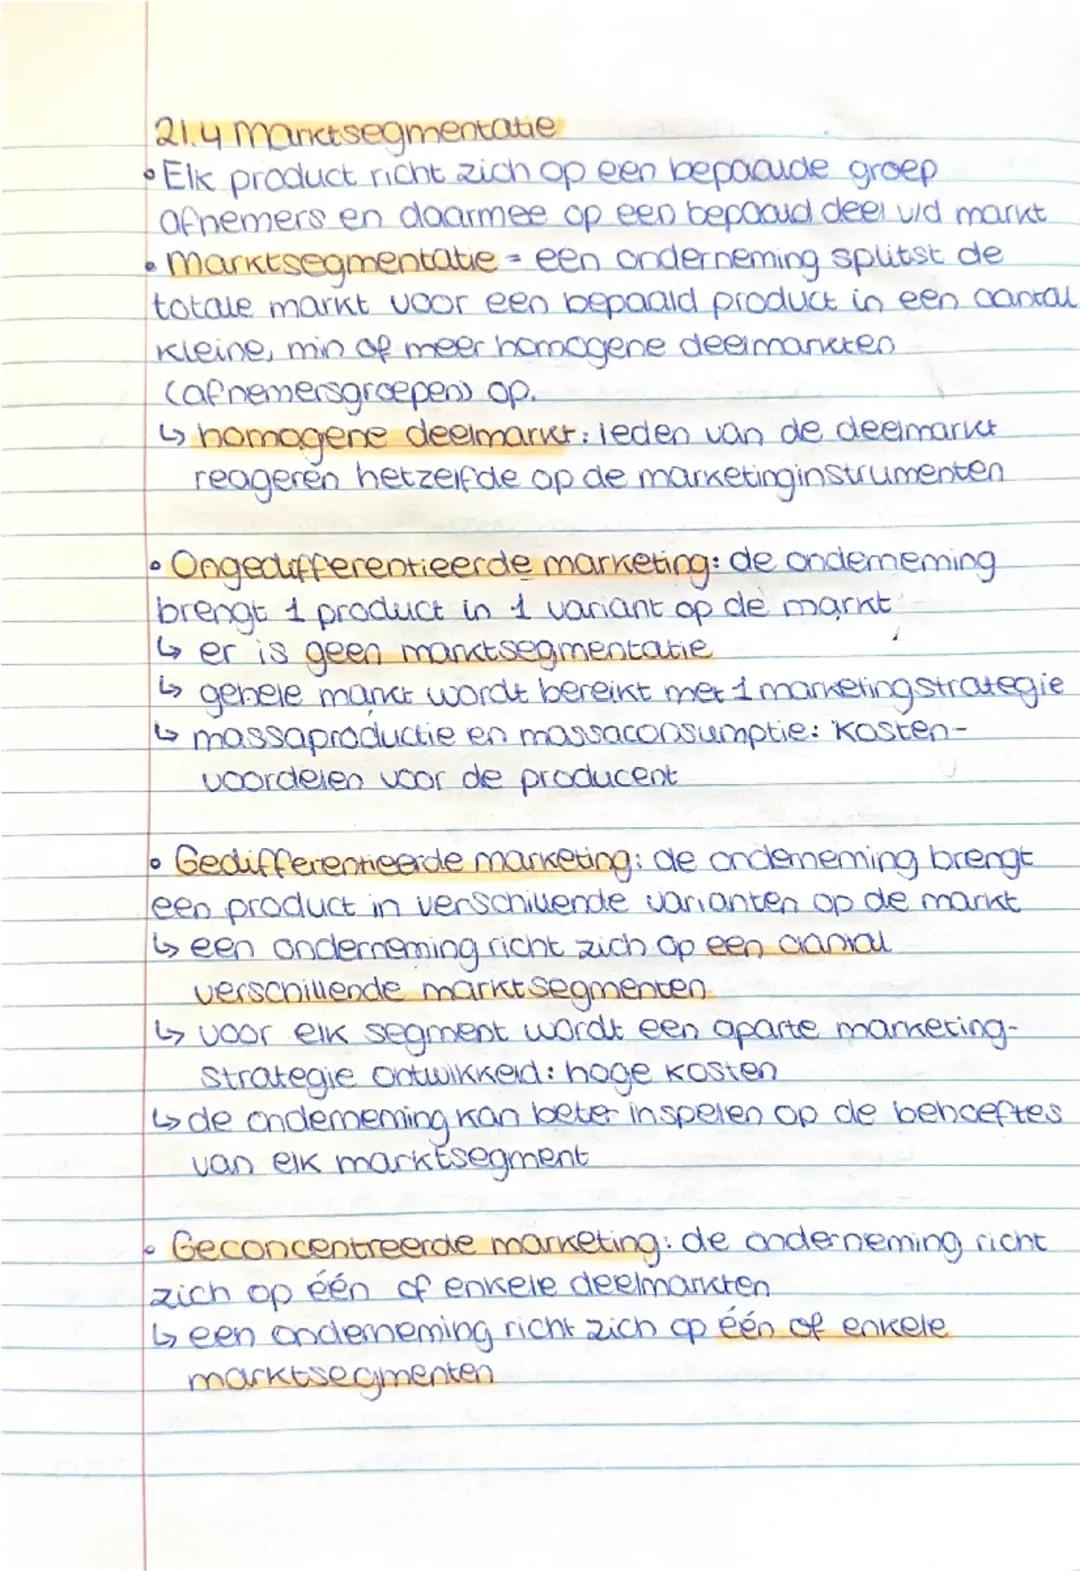 21.4 Marktsegmentatie
• Elk product richt zich op een bepaalde groep
afnemers en daarmee op een bepaald deel v/d markt
• Marktsegmentatie = een onderneming splitst de
totale markt voor een bepaald product in een aantal
kleine, min of meer homogene deelmarkten
(afnemersgroepen) op.
↳ homogene deelmarkt: leden van de deelmarkt
reageren hetzelfde op de marketinginstrumenten
• Ongedifferentieerde marketing: de onderneming
brengt 1 product in 1 variant op de markt
↳ er is geen marktsegmentatie
↳ gehele markt wordt bereikt met 1 marketingstrategie
↳ massaproductie en massaconsumptie: kosten-
voordelen voor de producent
• Gedifferentieerde marketing: de onderneming brengt
een product in verschillende varianten op de markt
↳ een onderneming richt zich op een aantal
verschillende marktsegmenten
↳ voor elk segment wordt een aparte marketing-
strategie ontwikkeld: hoge kosten
↳ de onderneming kan beter inspelen op de behoeftes
van elk marktsegment
• Geconcentreerde marketing: de onderneming richt
zich op één of enkele deelmarkten
↳ een onderneming richt zich op één of enkele
marktsegmenten